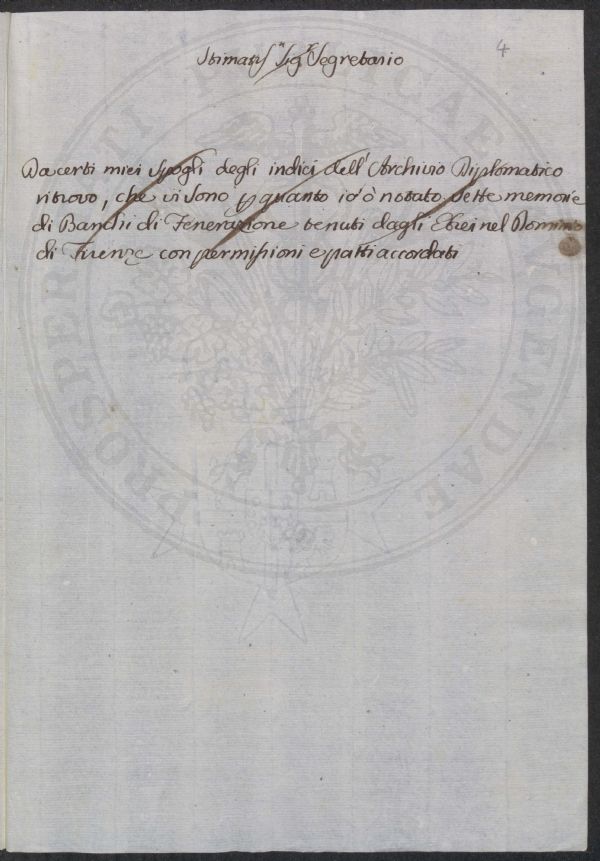 4
Stimatiss.º Sig.r Segretario
Da certi miei spogli degli indici dell' Archivio Diplomatico
ritrovo, che vi sono p quanto io ò notato sette memorie
di Banchi di Fenerazione tenuti dagli Ebrei nel Dominio
di Firenze con permissioni e patti accordati
PROSPERITATI AUGENDAE